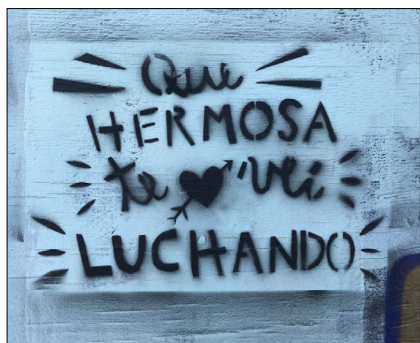 Que
HERMOSA
te vei
LUCHANDO